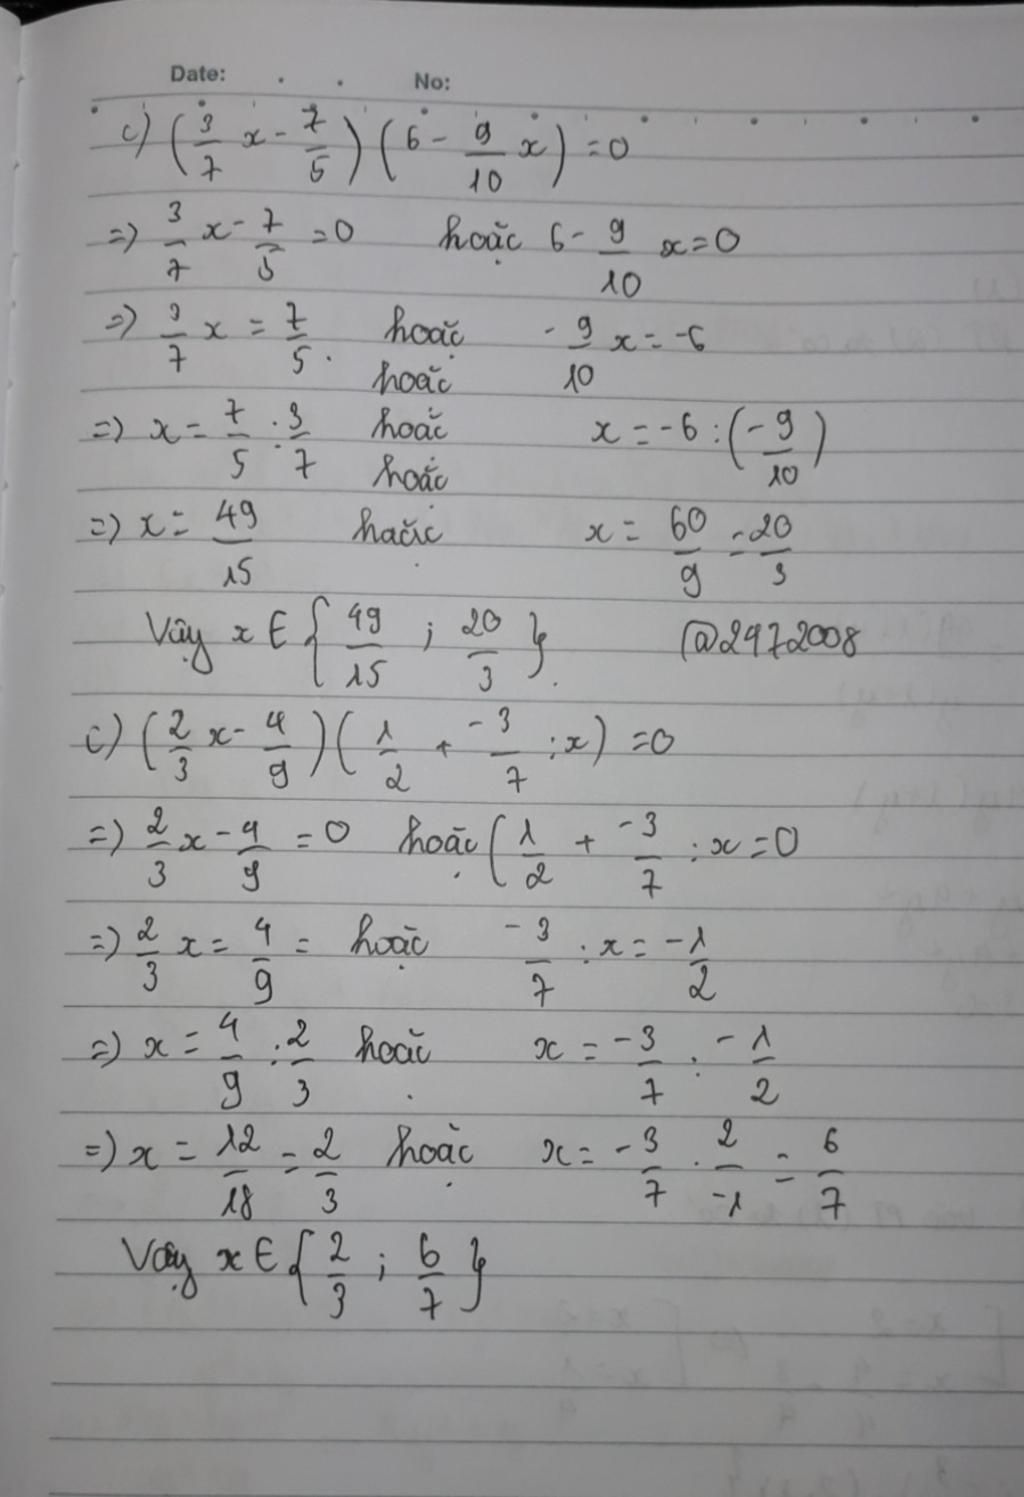 Date: . . No:
c) (3/7 x - 7/5) (6 - 9/10 x) = 0
=) 3/7 x - 7/5 = 0 hoặc 6 - 9/10 x = 0
=) 3/7 x = 7/5 . hoặc - 9/10 x = -6
hoặc
=) x = 7/5 : 3/7 hoặc x = -6 : (-9/10)
hoặc
=) x = 49/15 hoặc x = 60/9 = 20/3
Vậy x ∈ {49/15 ; 20/3}.
@2972008
c) (2/3 x - 4/9) (1/2 + -3/7 : x) = 0
=) 2/3 x - 4/9 = 0 hoặc (1/2 + -3/7 : x = 0
=) 2/3 x = 4/9 = hoặc -3/7 : x = -1/2
=) x = 4/9 : 2/3 hoặc x = -3/7 : -1/2
=) x = 12/18 = 2/3 hoặc x = -3/7 . 2/-1 = 6/7
Vậy x ∈ {2/3 ; 6/7}